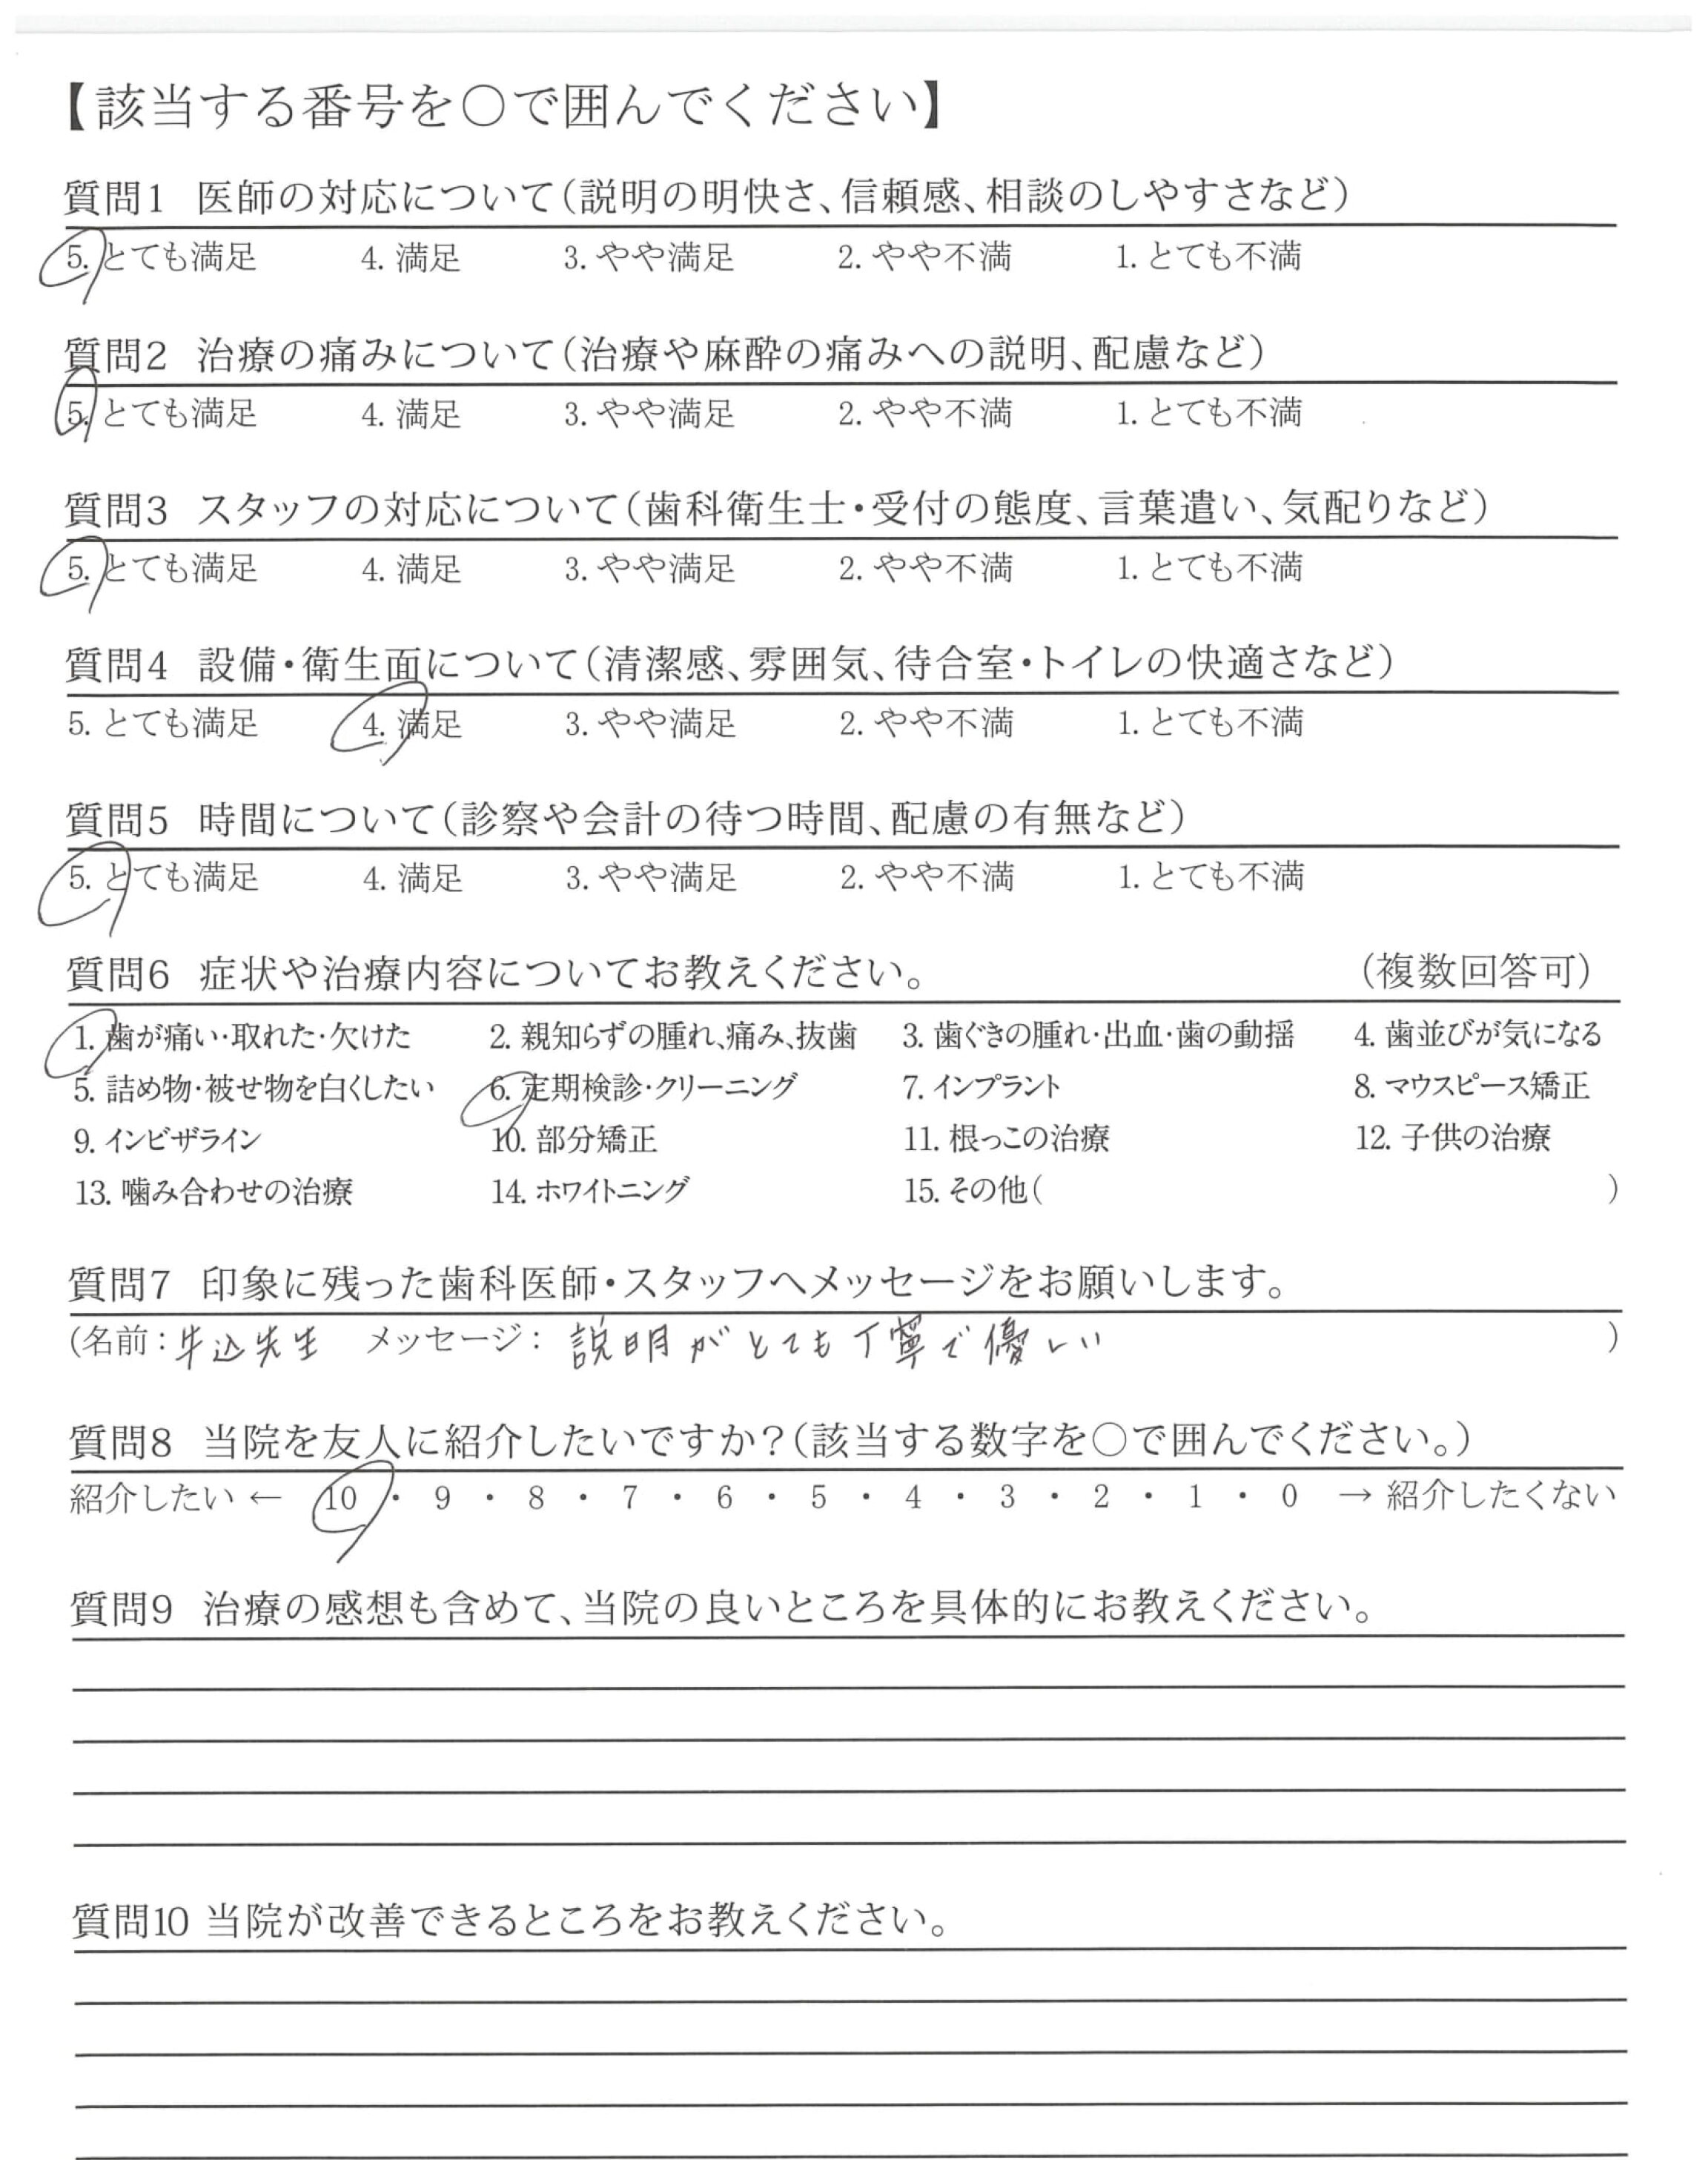 【該当する番号を○で囲んでください】
質問1 医師の対応について(説明の明快さ、信頼感、相談のしやすさなど)
5. とても満足 4. 満足 3. やや満足 2. やや不満 1. とても不満
質問2 治療の痛みについて(治療や麻酔の痛みへの説明、配慮など)
5. とても満足 4. 満足 3. やや満足 2. やや不満 1. とても不満
質問3 スタッフの対応について(歯科衛生士・受付の態度、言葉遣い、気配りなど)
5. とても満足 4. 満足 3. やや満足 2. やや不満 1. とても不満
質問4 設備・衛生面について(清潔感、雰囲気、待合室・トイレの快適さなど)
5. とても満足 4. 満足 3. やや満足 2. やや不満 1. とても不満
質問5 時間について(診察や会計の待つ時間、配慮の有無など)
5. とても満足 4. 満足 3. やや満足 2. やや不満 1. とても不満
質問6 症状や治療内容についてお教えください。 (複数回答可)
1. 歯が痛い・取れた・欠けた 2. 親知らずの腫れ、痛み、抜歯 3. 歯ぐきの腫れ・出血・歯の動揺 4. 歯並びが気になる
5. 詰め物・被せ物を白くしたい 6. 定期検診・クリーニング 7. インプラント 8. マウスピース矯正
9. インビザライン 10. 部分矯正 11. 根っこの治療 12. 子供の治療
13. 噛み合わせの治療 14. ホワイトニング 15. その他( )
質問7 印象に残った歯科医師・スタッフへメッセージをお願いします。
(名前:牛込先生 メッセージ: 説明がとても丁寧で優しい )
質問8 当院を友人に紹介したいですか?(該当する数字を○で囲んでください。)
紹介したい ← 10 ・ 9 ・ 8 ・ 7 ・ 6 ・ 5 ・ 4 ・ 3 ・ 2 ・ 1 ・ 0 → 紹介したくない
質問9 治療の感想も含めて、当院の良いところを具体的にお教えください。
質問10 当院が改善できるところをお教えください。